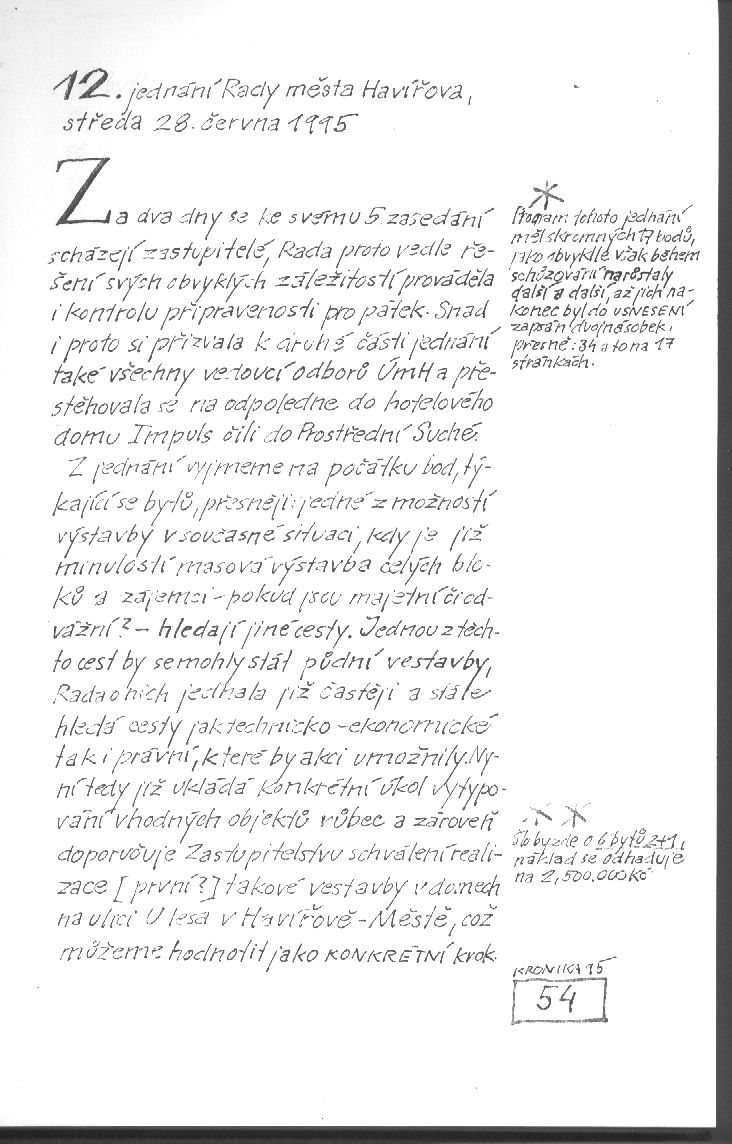 12. jednání Rady města Havířova,
středa 28. června 1995
Za dva dny se ke svému 5. zasedání
scházejí zastupitelé, Rada proto vedle ře-
šení svých obvyklých záležitostí prováděla
i kontrolu připravenosti pro pátek. Snad
i proto si přizvala k druhé části jednání
také všechny vedoucí odborů ÚmH a pře-
stěhovala se na odpoledne do hotelového
domu Impuls čili do Prostřední Suché.
Z jednání vyjmeme na počátku bod, tý-
kající se bytů, přesněji: jedné z možností
výstavby v současné situaci, kdy je již
minulostí masová výstavba celých blo-
ků a zájemci - pokud jsou majetní či od-
vážní? - hledají jiné cesty. Jednou z těch-
to cest by se mohly stát půdní vestavby,
Rada o nich jednala již častěji a stále
hledá cesty jak technicko-ekonomické
tak i právní, které by akci umožnily. Ny-
ní tedy již ukládá konkrétní úkol vytypo-
vání vhodných objektů vůbec a zároveň
doporučuje Zastupitelstvu schválení reali-
zace [první?] takové vestavby v domech
na ulici U lesa v Havířově-Městě, což
můžeme hodnotit jako KONKRETNÍ krok.
*
Program tohoto jednání
měl skromných 17 bodů,
jako obvykle však během
schůzování narůstaly
další a další, až jich na-
konec byl do USNESENÍ
zapsán dvojnásobek,
přesně: 34 a to na 17
stránkách.
* *
Šlo by zde o 6 bytů 2+1,
náklad se odhaduje
na 2,500.000 Kč
KRONIKA 95
54